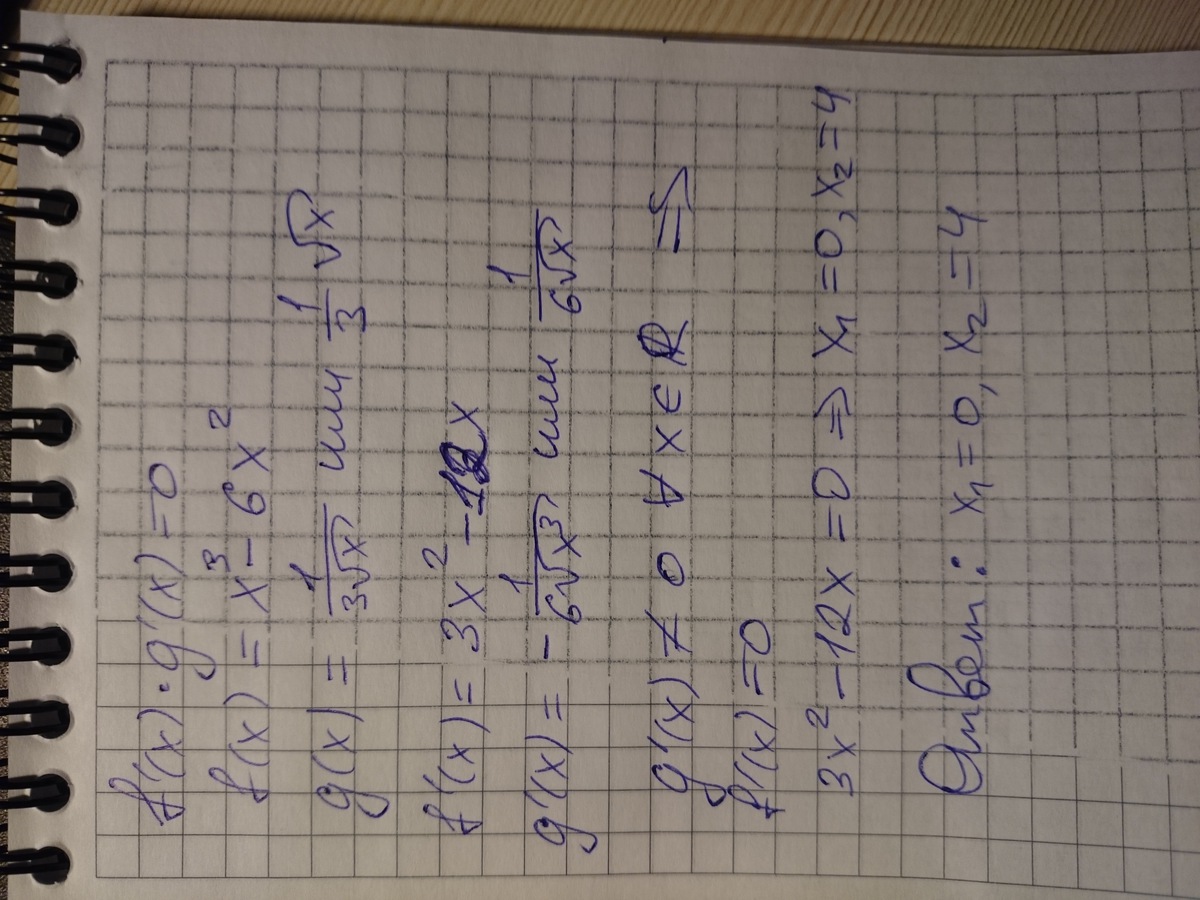 f'(x)·g'(x)=0
f(x) = x³ - 6x²
g(x) = 1/(3√x) или 1/3 √x
f'(x) = 3x² - 12x
g'(x) = - 1/(6√x³) или 1/(6√x)
g'(x) ≠ 0 ∀ x ∈ R ⇒
f'(x) = 0
3x² - 12x = 0 ⇒ x₁ = 0, x₂ = 4
Ответ: x₁ = 0, x₂ = 4